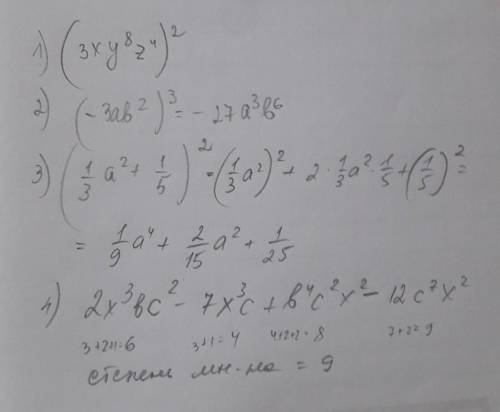 1) (3xy⁸z⁴)²
2) (-3ab²)³ = -27a³b⁶
3) (1/3 a² + 1/5)² = (1/3 a²)² + 2 · 1/3 a² · 1/5 + (1/5)² =
= 1/9 a⁴ + 2/15 a² + 1/25
4) 2x³bc² - 7x³c + b⁴c²x² - 12c⁷x²
3+2+1=6 3+1=4 4+2+2=8 7+2=9
степень мн-на = 9